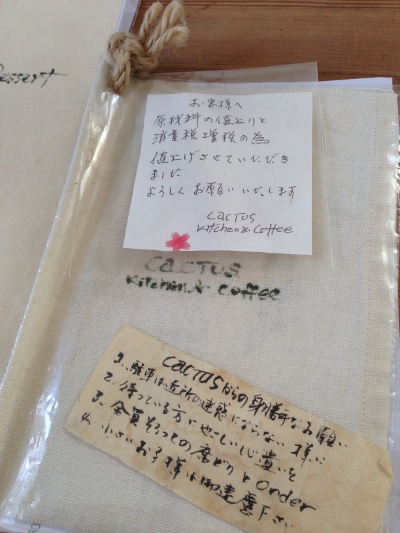 Dessert
お客様へ
原材料の値上りと
消費税増税の為
値上げさせていただき
ました
よろしくお願いいたします
CACTUS
Kitchen & Coffee
CACTUS
Kitchen & Coffee
CACTUSからの身勝手なお願い
1、駐車は近所の迷惑にならない様に
2、待っている方にせこい心遣いを
3、全員そろっての席どりとOrder
4、小さいお子様は御遠慮下さい